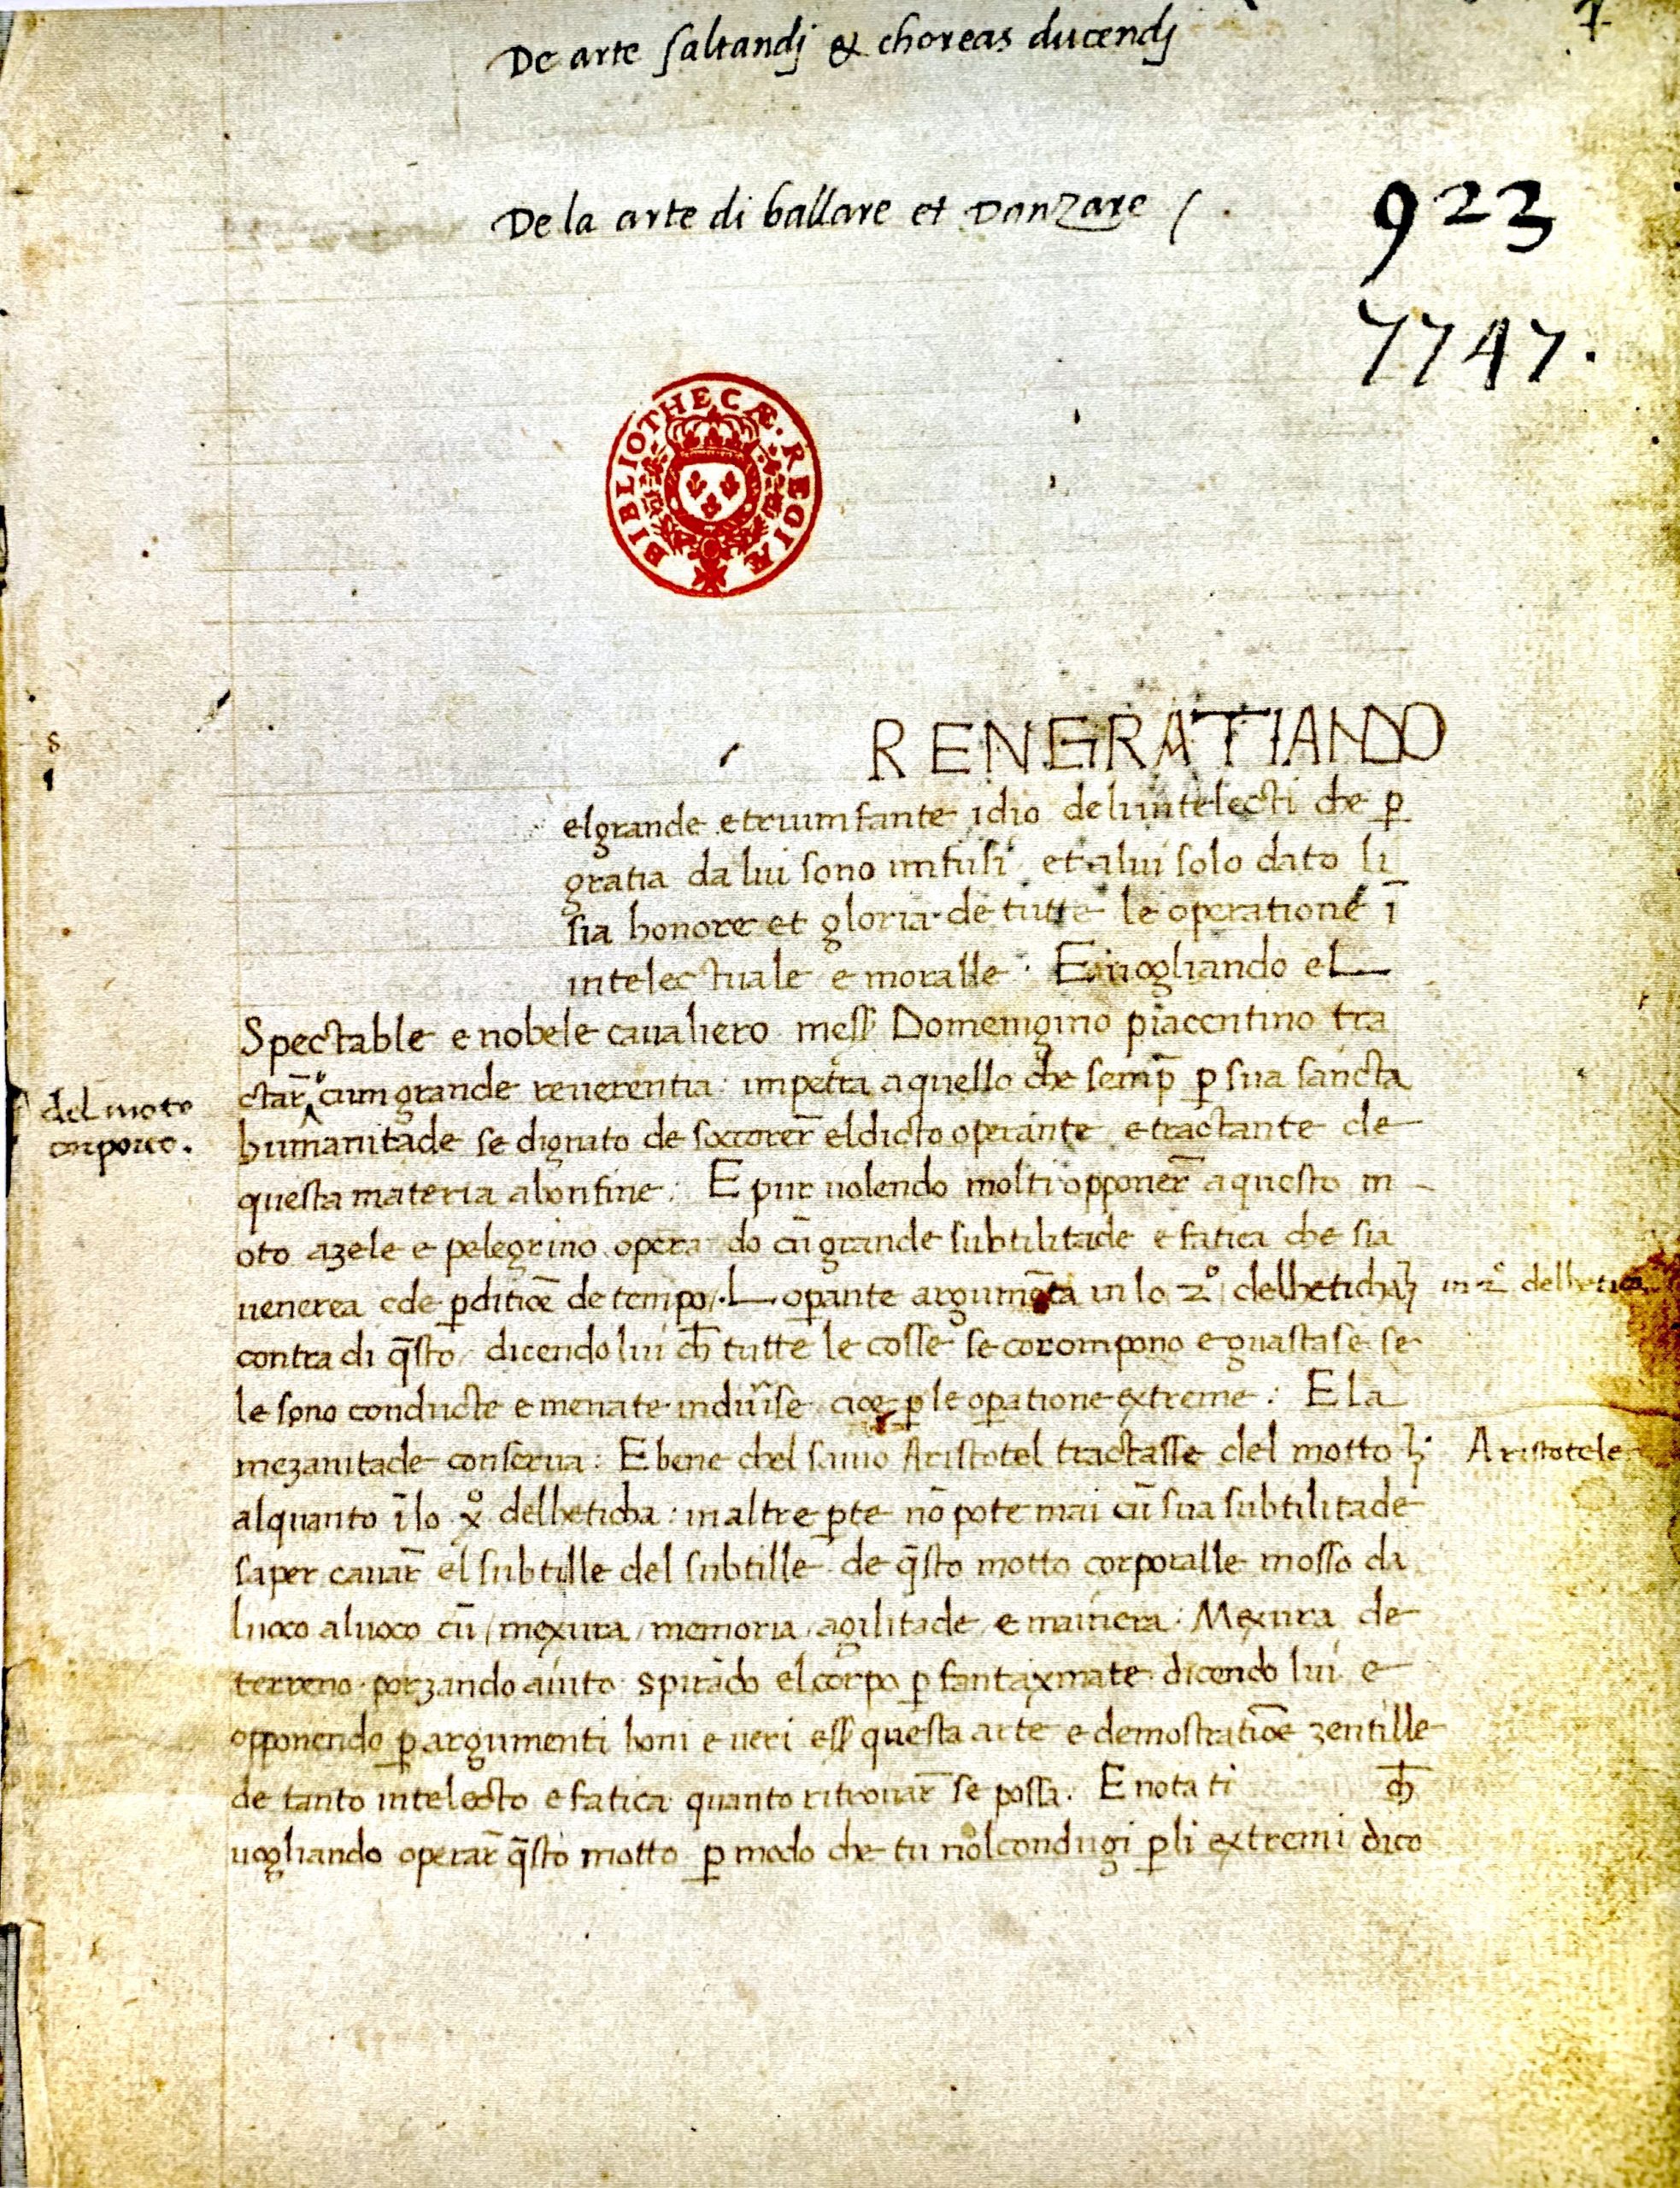 De arte saltandj & choreas ducendj
De la arte di ballare et Danzare
923
7747.
BIBLIOTHECÆ REGIÆ
RENGRATIANDO
elgrande e triumfante idio deli intelecti che p̲
gratia da lui sono imfusi et a lui solo dato li
sia honore et gloria de tutte le operatione ī
intelectuale e moralle. E uogliando el
Spectable e nobele caualiero mess̃ Domenigino piacentino tra
ctar̄ cum grande reuerentia: impetra aquello che semp̄ p̲ sua sancta
del moto
corporeo.
humanitade se dignato de soccorer̄ eldicto operante e tractante de
questa materia abonfine. E pur uolendo molti opponer̄ aquesto m
oto azele e pelegrino opera do cū grande subtilitade e fatica che sia
uenerea e de p̲ditiōe de tempo. L operante argumēta in lo 2º delheticha
in 2º delhetica
contra di q̄sto dicendo lui ch̄ tutte le cosse se corompono e guastase se
le sono conducte e menate indiuīse cioe p̲ le op̲atione extreme: E la
mezanitade conserua: E bene chel sauio Aristotel tractasse del motto
Aristotele
alquanto ī lo xº delheticha: in altre p̲te nō pote mai cū sua subtilitade
saper cauar̄ el subtille del subtille de q̄sto motto corporalle mosso da
luoco aluoco cū mexura memoria agilitade e mainera: Mexura de
terreno porzando aiuto spirādo el corpo p̲ fantaxmate dicendo lui e
opponendo p̲ argumenti boni e ueri ess̃ questa arte e demostratiōe zentille
de tanto intelecto e fatica quanto ritrouar̄ se possa. E nota ti ch̄
uogliando operar̄ q̄sto motto p̲ modo che tu nol condugi p̲ li extremi dico